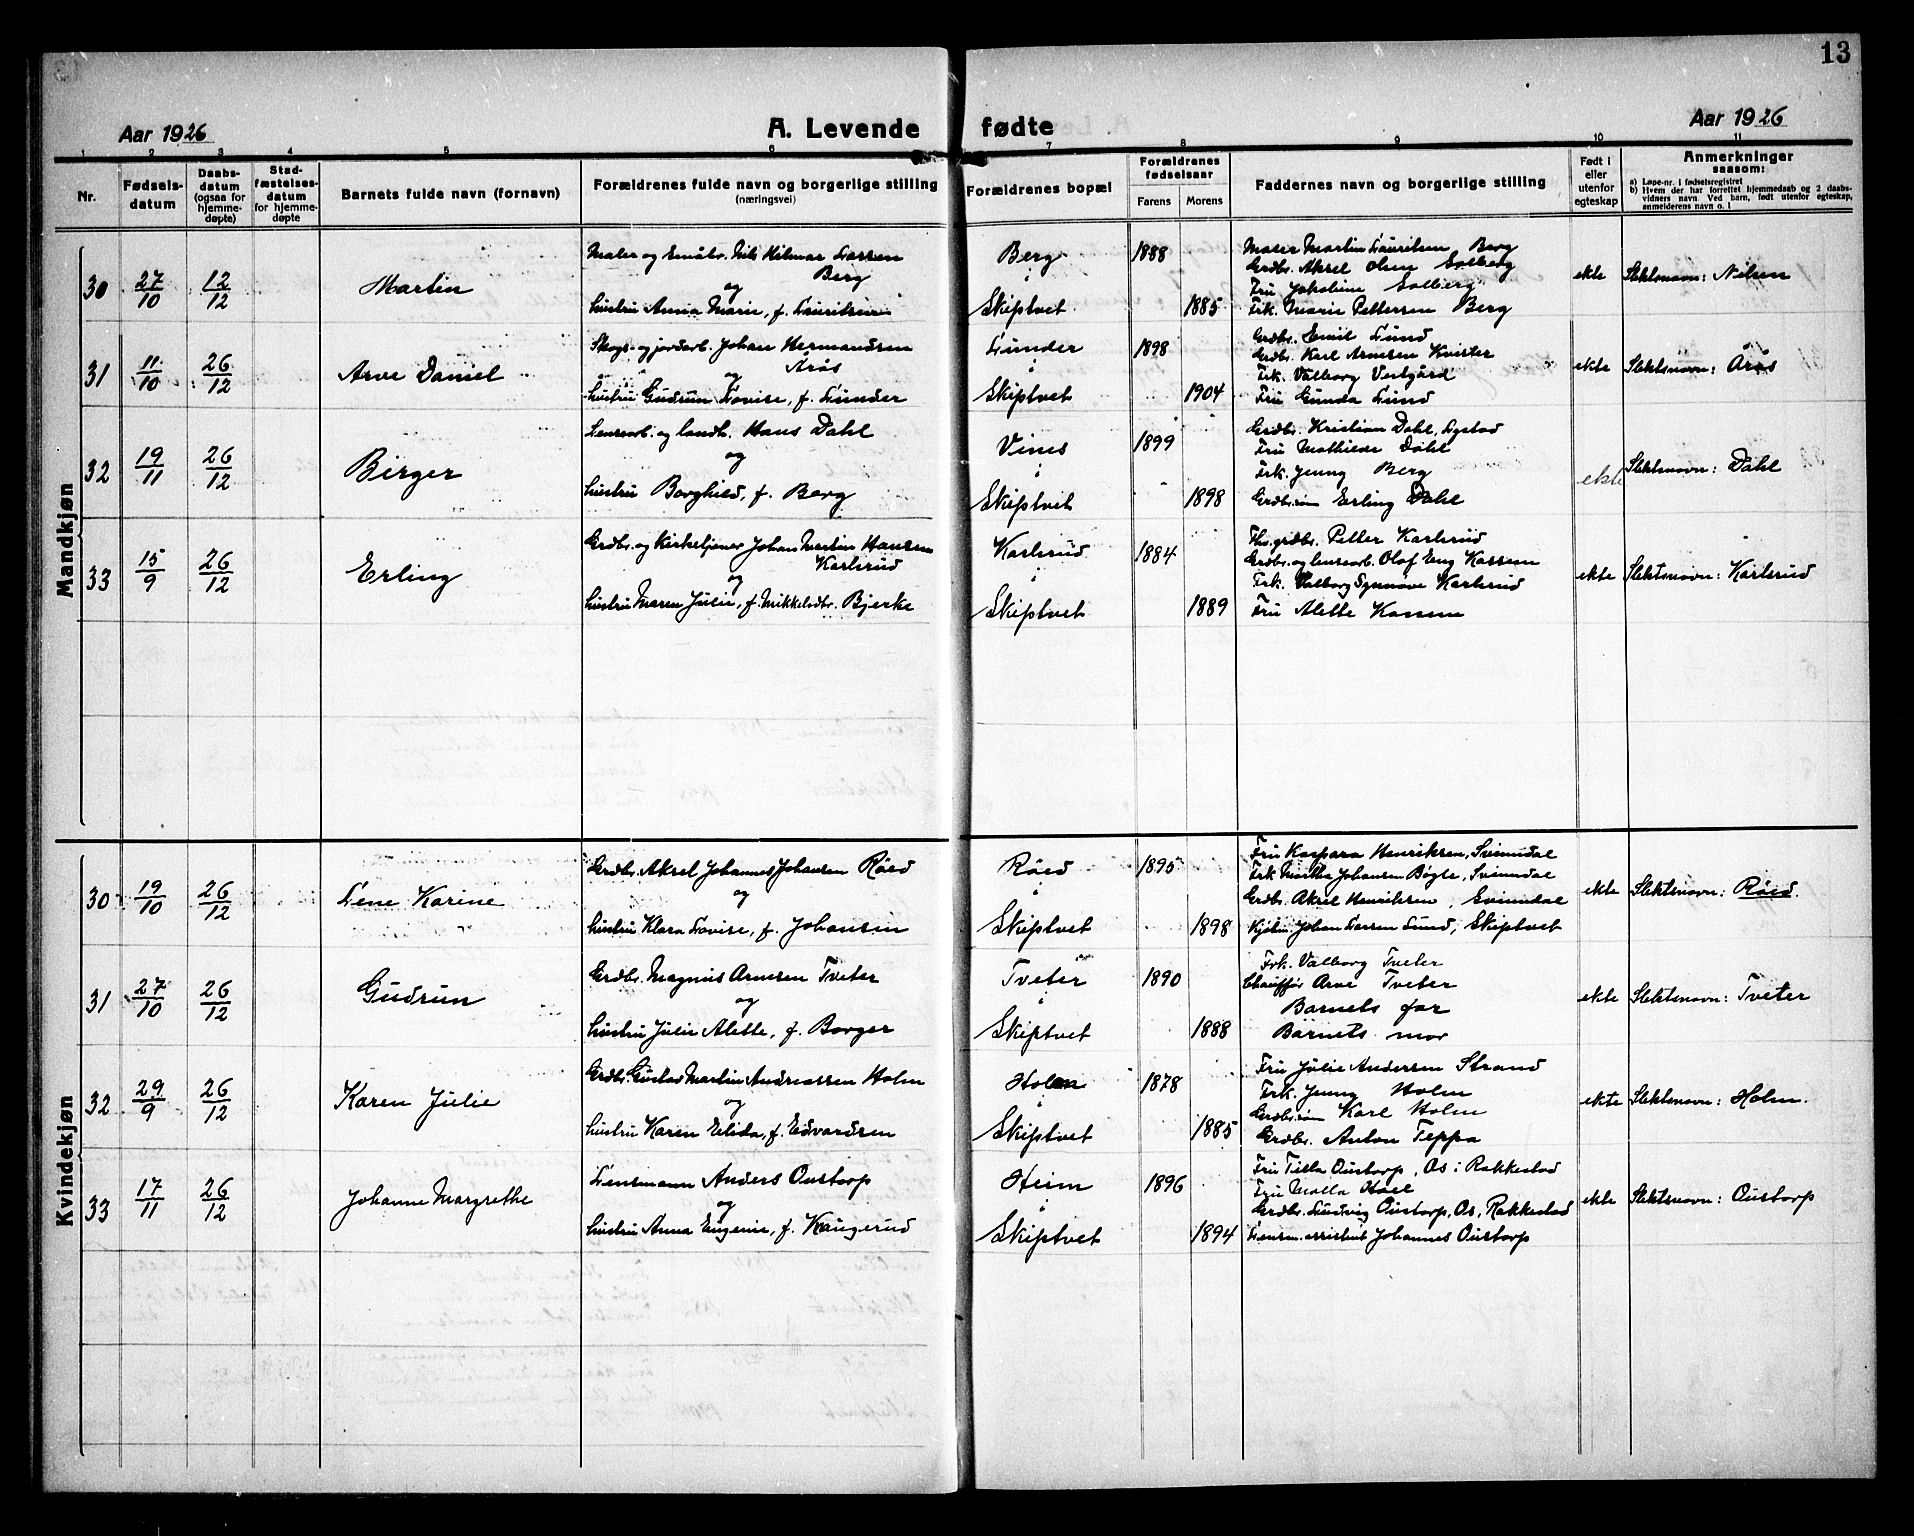 13
Aar 1926
A. Levende fødte
Aar 1926
1 2 3 4 5 6 7 8 9 10 11
Nr.
Fødsels-datum
Daabs-datum (ogsaa for hjemme-døpte)
Stad-fæstelses-datum for hjemme-døpte
Barnets fulde navn (fornavn)
Forældrenes fulde navn og borgerlige stilling (næringsvei)
Forældrenes bopæl
Forældrenes fødselsaar
Farens Morens
Faddernes navn og borgerlige stilling
Født i eller utenfor egteskap
Anmerkninger saasom:
a) Løpe-nr. i fødselsregistret
b) Hvem der har forrettet hjemmedaab og 2 daabs-vidners navn. Ved barn, født utenfor egteskap, anmelderens navn o. l
Mandkjøn
30 27/10 12/12 Martin
Maler og Småbr. Nils Hilmar Larsen
Berg
og
hustru Anna Marie, f. Lauritsen
Berg
i
Skiptvet
1888
1885
Maler Martin Lauritsen Berg
Grdbr. Aksel Olsen Solberg
Fru Jakobine Solberg
Frk. Marie Pettersen Berg
ekte Slektsnavn: Nilsen
31 11/10 26/12 Arve Daniel
Skogs- og jordarb. Johan Hermandsen
Årøs
og
hustru Gudrun Lovise, f. Lunder
Lunder
i
Skiptvet
1898
1904
Grdbr. Emil Lund
Grdbr. Karl Arnesen Kvister
Frk. Valborg Vestgård
Fru Gunda Lund
ekte Slektsnavn: Årøs
32 19/11 26/12 Birger
Lensarb. og landh. Hans Dahl
og
hustru Borghild, f. Berg
Vines
i
Skiptvet
1899
1898
Grdbr. Kristian Dahl,
Fru Mathilde Dahl
Frk. Jenny Berg
Grdbr.søn Erling Dahl
ekte Slektsnavn: Dahl
33 15/9 26/12 Erling
Grdbr. og Kirketjener Johan Martin Hansen
Karlsrud
og
hustru Maren Julie, f. Mikkelsdtr. Bjerke
Karlsrud
i
Skiptvet
1884
1889
Petter Karlsrud
Grdbr. og Olaf Eng Kassen
Frk. Valborg Synnøve Karlsrud
Fru Alette Kassen
ekte Slektsnavn: Karlsrud
Kvindekjøn
30 19/10 26/12 Lene Karine
Grdbr. Aksel Johannes Johansen Røed
og
hustru Klara Lovise, f. Johansen
Røed
i
Skiptvet
1895
1898
Fru Kaspara Henriksen, Svinndal
Frk. Johansen Bøgle, Svinndal
Grdbr. Aksel Henriksen, Svinndal
Johan Larsen Lund, Skiptvet
ekte Slektsnavn: Røed.
31 27/10 26/12 Gudrun
Grdbr. Magnus Arnesen Tveter
og
hustru Julie Alette, f. Borger
Tveter
i
Skiptvet
1890
1888
Frk. Valborg Tveter
Chauffør Arve Tveter
Barnets far
Barnets mor
ekte Slektsnavn: Tveter
32 29/9 26/12 Karen Julie
Grdbr. Gustav Martin Andreassen Holm
og
hustru Karen Elida, f. Edvardsen
Holm
i
Skiptvet
1878
1885
Fru Julie Andersen Strand
Frk. Jenny Holm
Grdbr.søn Karl Holm
Grdbr. Anton Teppa
ekte Slektsnavn: Holm.
33 17/11 26/12 Johanne Margrethe
Lensmann Anders Oustorp
og
hustru Anna Eugenie, f. Haugerud
Heim
i
Skiptvet
1896
1894
Fru Tilla Oustorp, Os i Rakkestad
Fru Molla Hoel
Grdbr. Ludvig Oustorp, Os, Rakkestad
Lensm.assistent Johannes Oustorp
ekte Slektsnavn: Oustorp